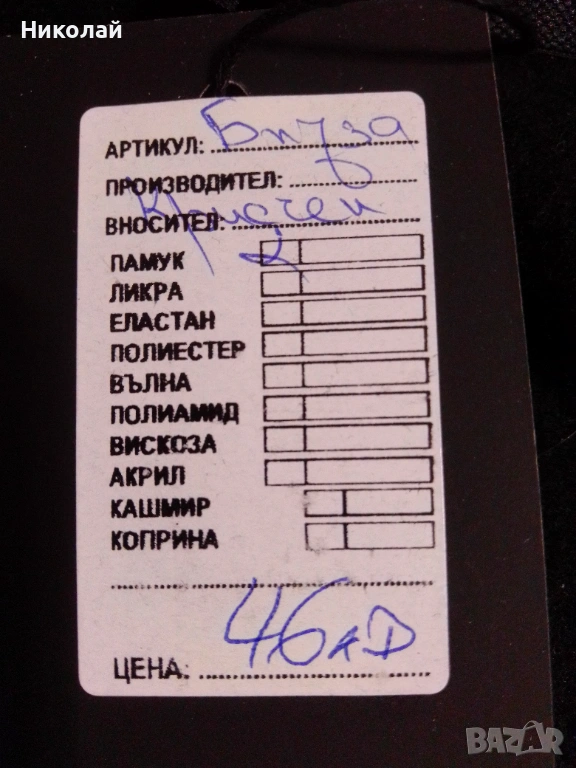 Николай
АРТИКУЛ: Блуза
ПРОИЗВОДИТЕЛ:
ВНОСИТЕЛ:
ПАМУК
ЛИКРА
ЕЛАСТАН
ПОЛИЕСТЕР
ВЪЛНА
ПОЛИАМИД
ВИСКОЗА
АКРИЛ
КАШМИР
КОПРИНА
ЦЕНА:
BAZAR